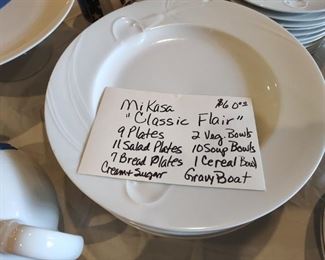 Mikasa $60.00
"Classic Flair"
9 Plates 2 Veg Bowls
11 Salad Plates 10 Soup Bowls
7 Bread Plates 1 Cereal Bowl
Cream + Sugar Gravy Boat